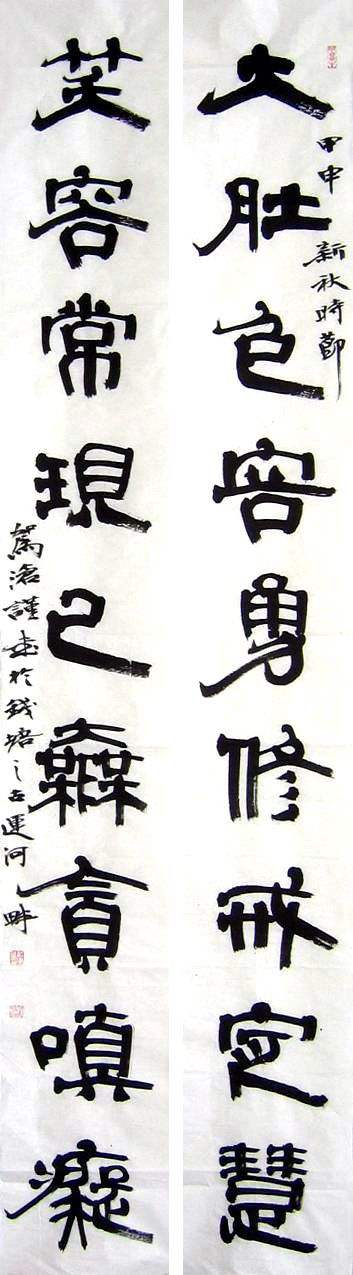 甲申新秋時節
大肚包容勇修戒定慧
笑容常現已無貪嗔癡
滄謹書於錢塘之古運河畔